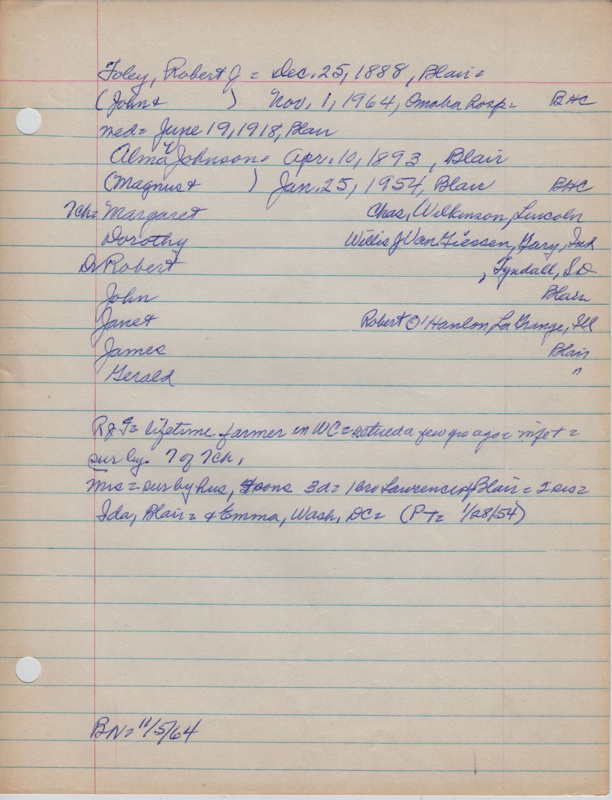 Foley, Robert J = Dec. 25, 1888, Blair =
(John + ) Nov. 1, 1964, Omaha hosp = BHC
med = June 19, 1918, Blair
Alma V Johnson = Apr. 10, 1893, Blair
(Magnus + ) Jan. 25, 1954, Blair BHC
7ch = Margaret Chas, Wilkinson, Lincoln
Dorothy Willis J Van Giessen, Gary, Ind
Dr Robert , Tyndall, S D
John Blair
Janet Robert O'Hanlon, La Grange, Ill
James Blair
Gerald "
R J F = lifetime farmer in WC = retired a few yrs ago =
sur by. 7 of 7ch,
Mrs = sur by hus, 4 sons 3d = 1 bro Lawrence of Blair = 2 sis =
Ida, Blair = + Emma, Wash, DC = (PT = 1/28/54)
BN = 11/5/64